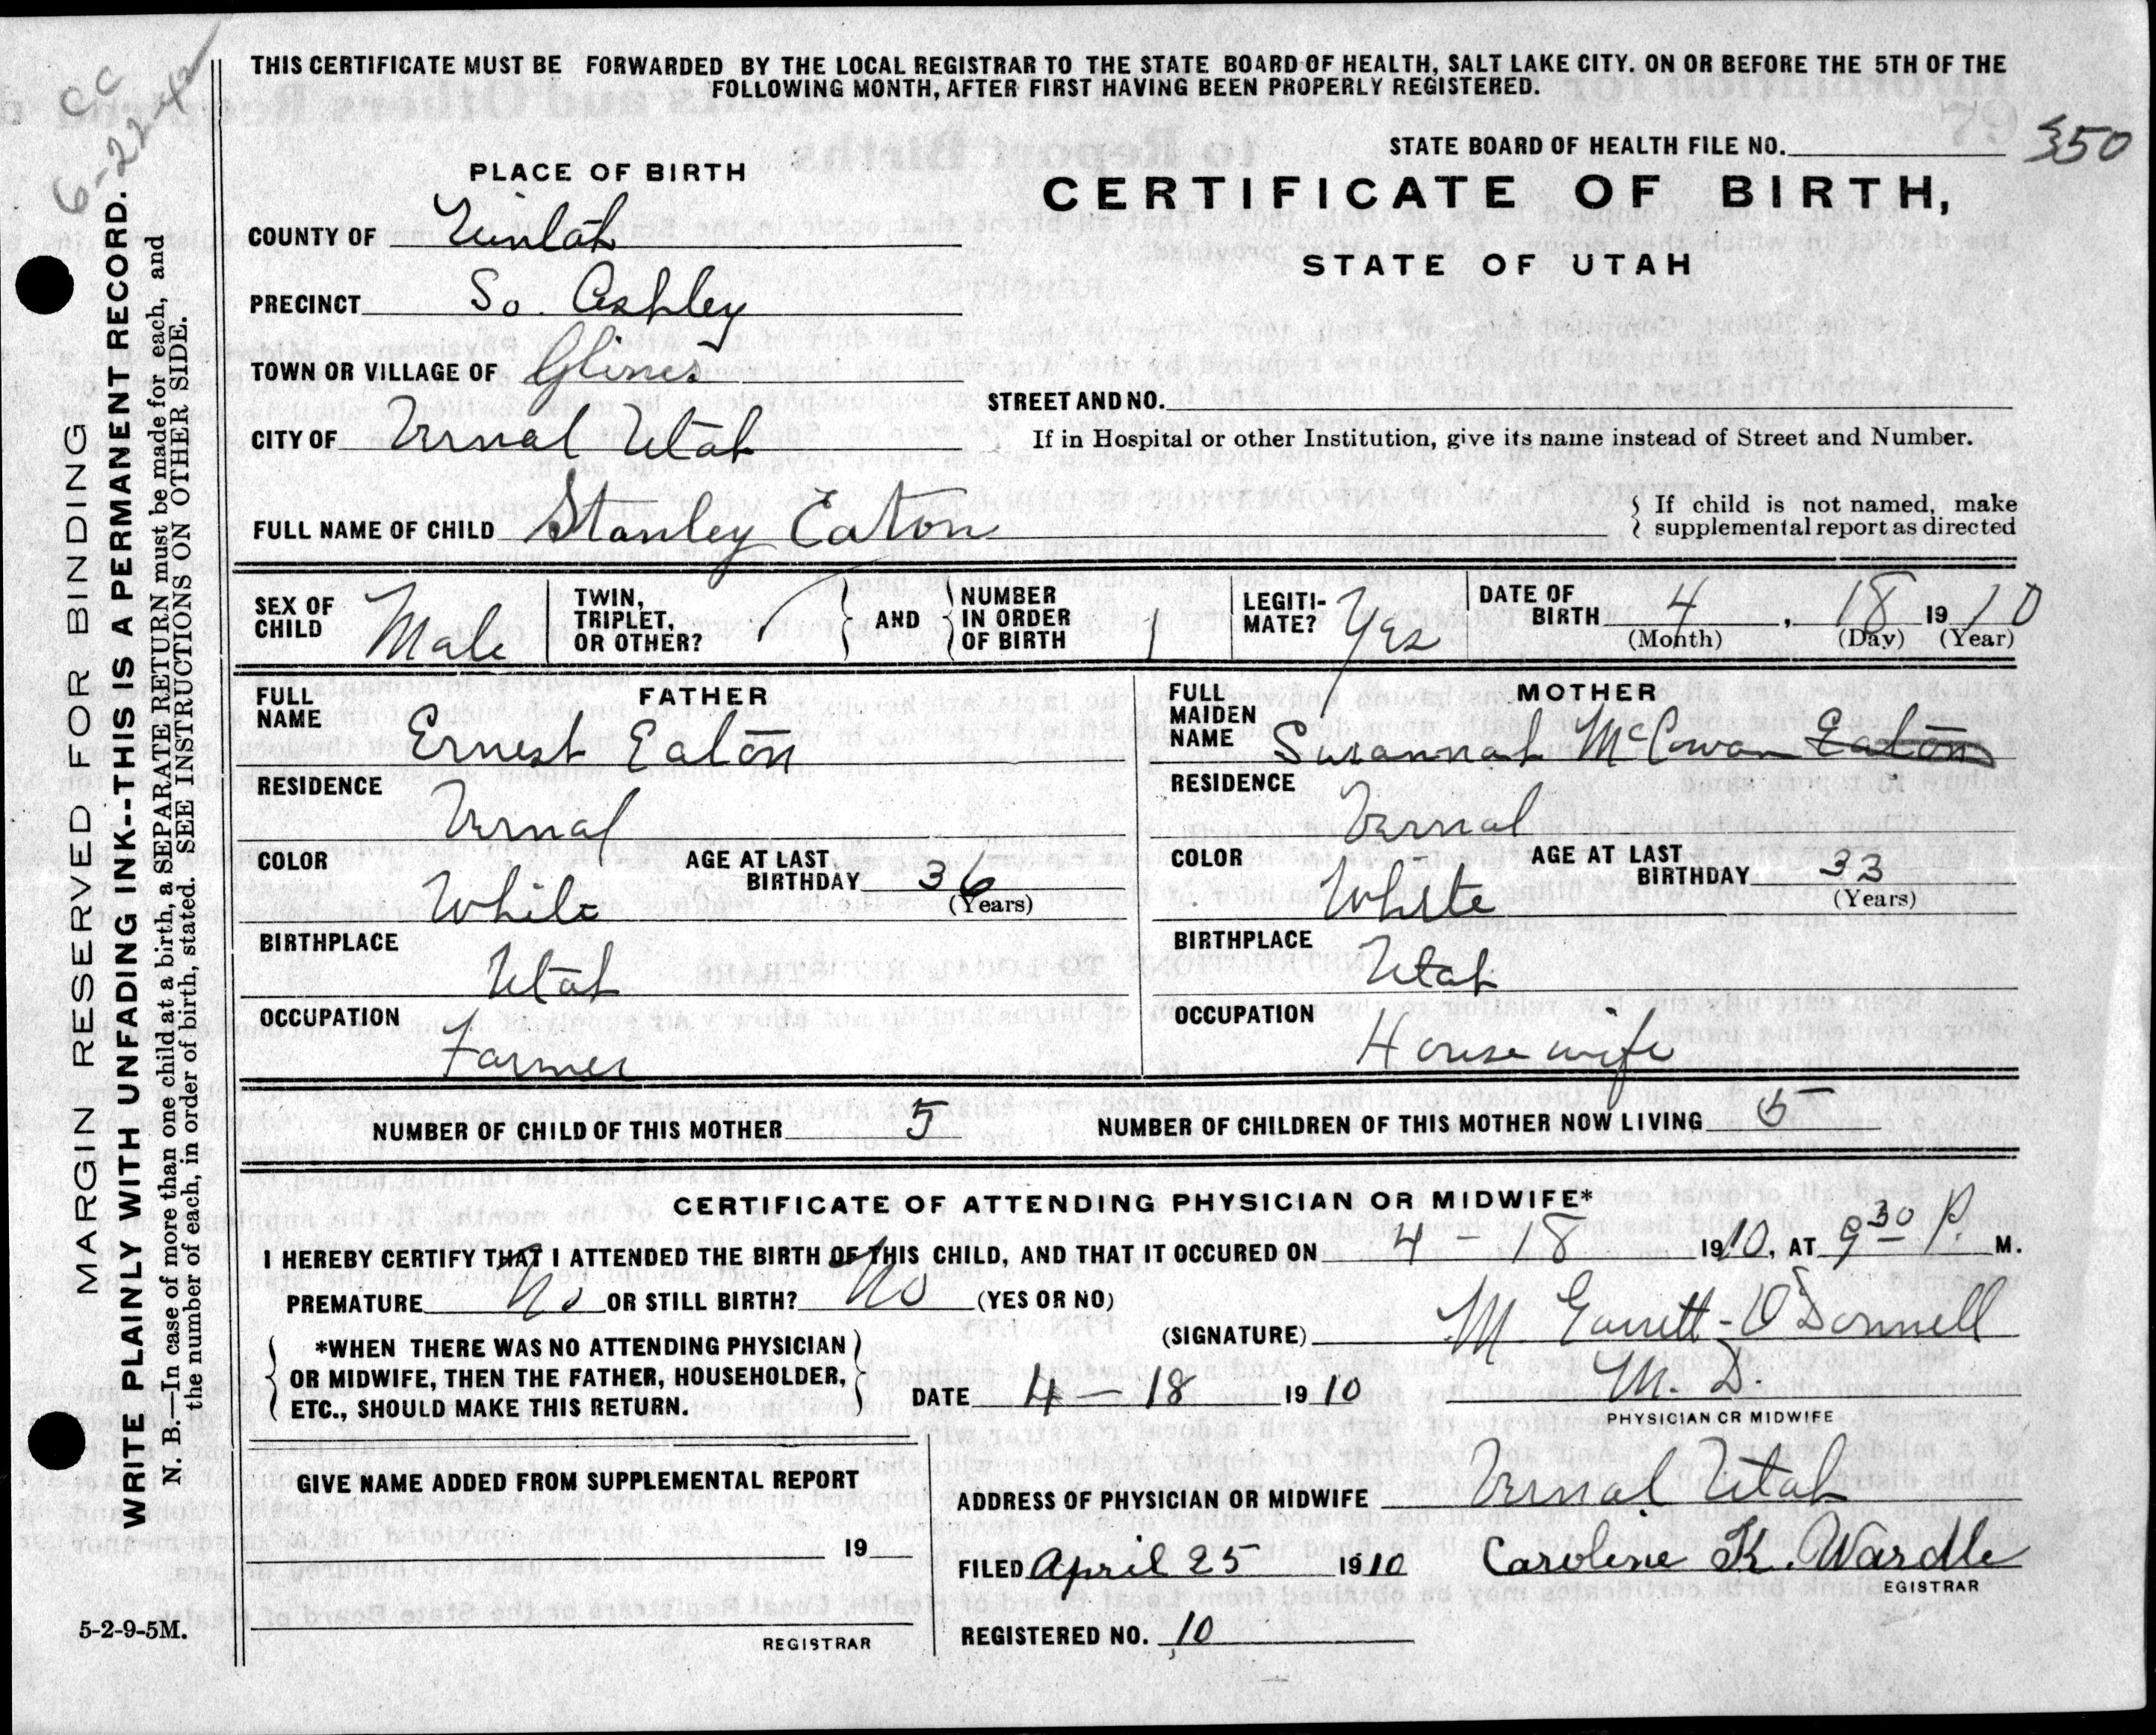 THIS CERTIFICATE MUST BE FORWARDED BY THE LOCAL REGISTRAR TO THE STATE BOARD OF HEALTH, SALT LAKE CITY. ON OR BEFORE THE 5TH OF THE
FOLLOWING MONTH, AFTER FIRST HAVING BEEN PROPERLY REGISTERED.
CC
6-22-42
STATE BOARD OF HEALTH FILE NO. 350
CERTIFICATE OF BIRTH,
STATE OF UTAH
PLACE OF BIRTH
COUNTY OF Uintah
PRECINCT So. Ashley
TOWN OR VILLAGE OF Glines
CITY OF Vernal Utah
STREET AND NO.
If in Hospital or other Institution, give its name instead of Street and Number.
FULL NAME OF CHILD Stanley Eaton
If child is not named, make
supplemental report as directed
SEX OF CHILD Male
TWIN, TRIPLET, OR OTHER?
AND
NUMBER IN ORDER OF BIRTH 1
LEGITI-MATE? Yes
DATE OF BIRTH 4, 18 1910
(Month) (Day) (Year)
FATHER
FULL NAME Ernest Eaton
RESIDENCE Vernal
COLOR White
AGE AT LAST BIRTHDAY 36
(Years)
BIRTHPLACE Utah
OCCUPATION Farmer
MOTHER
FULL MAIDEN NAME Susannah McCowan Eaton
RESIDENCE Vernal
COLOR White
AGE AT LAST BIRTHDAY 33
(Years)
BIRTHPLACE Utah
OCCUPATION Housewife
NUMBER OF CHILD OF THIS MOTHER 5 NUMBER OF CHILDREN OF THIS MOTHER NOW LIVING 5
CERTIFICATE OF ATTENDING PHYSICIAN OR MIDWIFE*
I HEREBY CERTIFY THAT I ATTENDED THE BIRTH OF THIS CHILD, AND THAT IT OCCURED ON 4-18 1910, AT 9 30 P. M.
PREMATURE No OR STILL BIRTH? No (YES OR NO)
*WHEN THERE WAS NO ATTENDING PHYSICIAN
OR MIDWIFE, THEN THE FATHER, HOUSEHOLDER,
ETC., SHOULD MAKE THIS RETURN.
(SIGNATURE) M Garrett-O'Donnell
M. D.
PHYSICIAN OR MIDWIFE
DATE 4-18 1910
GIVE NAME ADDED FROM SUPPLEMENTAL REPORT
19
REGISTRAR
ADDRESS OF PHYSICIAN OR MIDWIFE Vernal Utah
FILED April 25 1910 Caroline K. Wardle
EGISTRAR
REGISTERED NO. 10
5-2-9-5M.
MARGIN RESERVED FOR BINDING
WRITE PLAINLY WITH UNFADING INK--THIS IS A PERMANENT RECORD.
N. B.—In case of more than one child at a birth, a SEPARATE RETURN must be made for each, and
the number of each, in order of birth, stated. SEE INSTRUCTIONS ON OTHER SIDE.